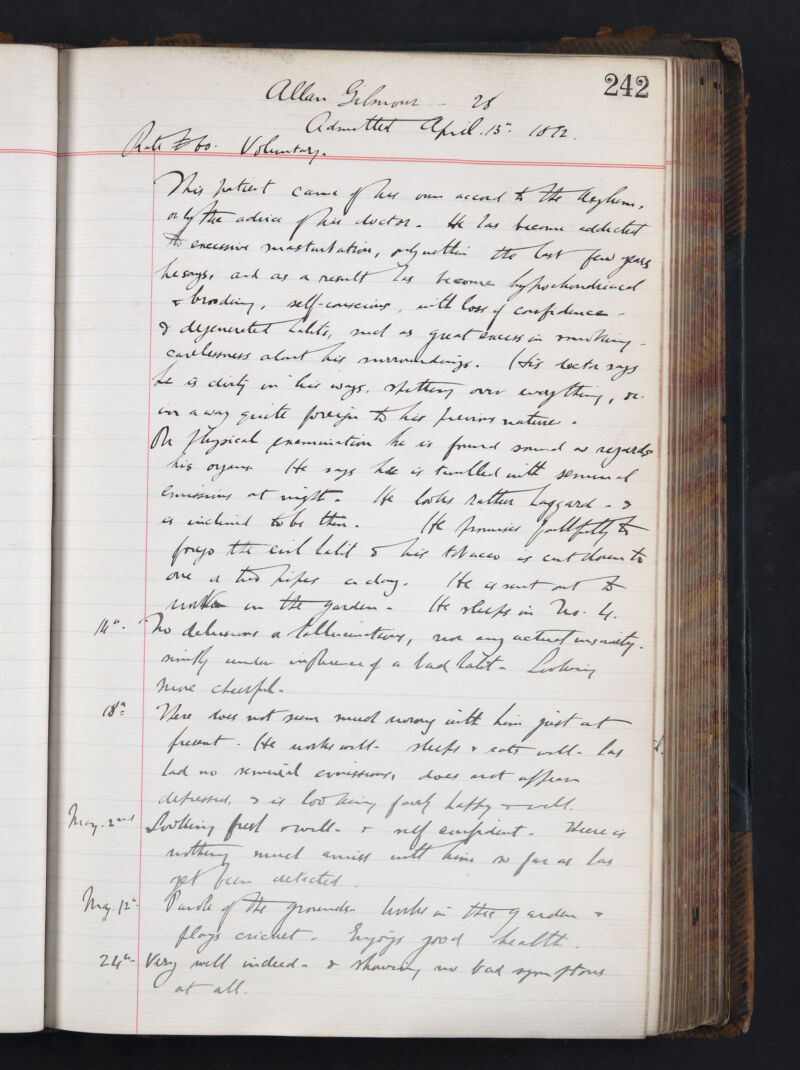 242
Allan Gilmour - 28
Admitted April. 13th 1892.
Rate £60. Voluntary.
This patient came of his own accord to the Asylum,
or by the advice of his doctor. He has become addicted
to excessive masturbation, only within the last few years
he says, and as a result has become hypochondriacal
& brooding, self-conscious, with loss of confidence -
& degenerated habits, such as great excess in smoking -
carelessness about his surroundings. (His doctor says
he is dirty in his ways, spitting over everything, &c.
in a way quite foreign to his previous nature.
On physical examination he is found sound as regards
his organs. He says he is troubled with seminal
emissions at night. He looks rather haggard - &
is inclined to be thin. He promises faithfully to
forego the evil habit & his tobacco is cut down to
one or two pipes a day. He is sent out to
work in the garden - He sleeps in No. 4.
14th. No delusions or hallucinations, nor any actual insanity -
simply under influence of a bad habit - Looking
more cheerful.
18th There does not seem much wrong with him just at
present. He works well - sleeps & eats well - has
had no seminal emissions, does not appear
depressed, & is looking fairly happy & well.
May. 2nd Looking fresh & well - & self confident - There is
nothing much amiss with him so far as has
yet been detected.
May. 12th Parole of the grounds - works in the garden &
plays cricket. Enjoys good health.
24th Very well indeed - & showing no bad symptoms
at all.